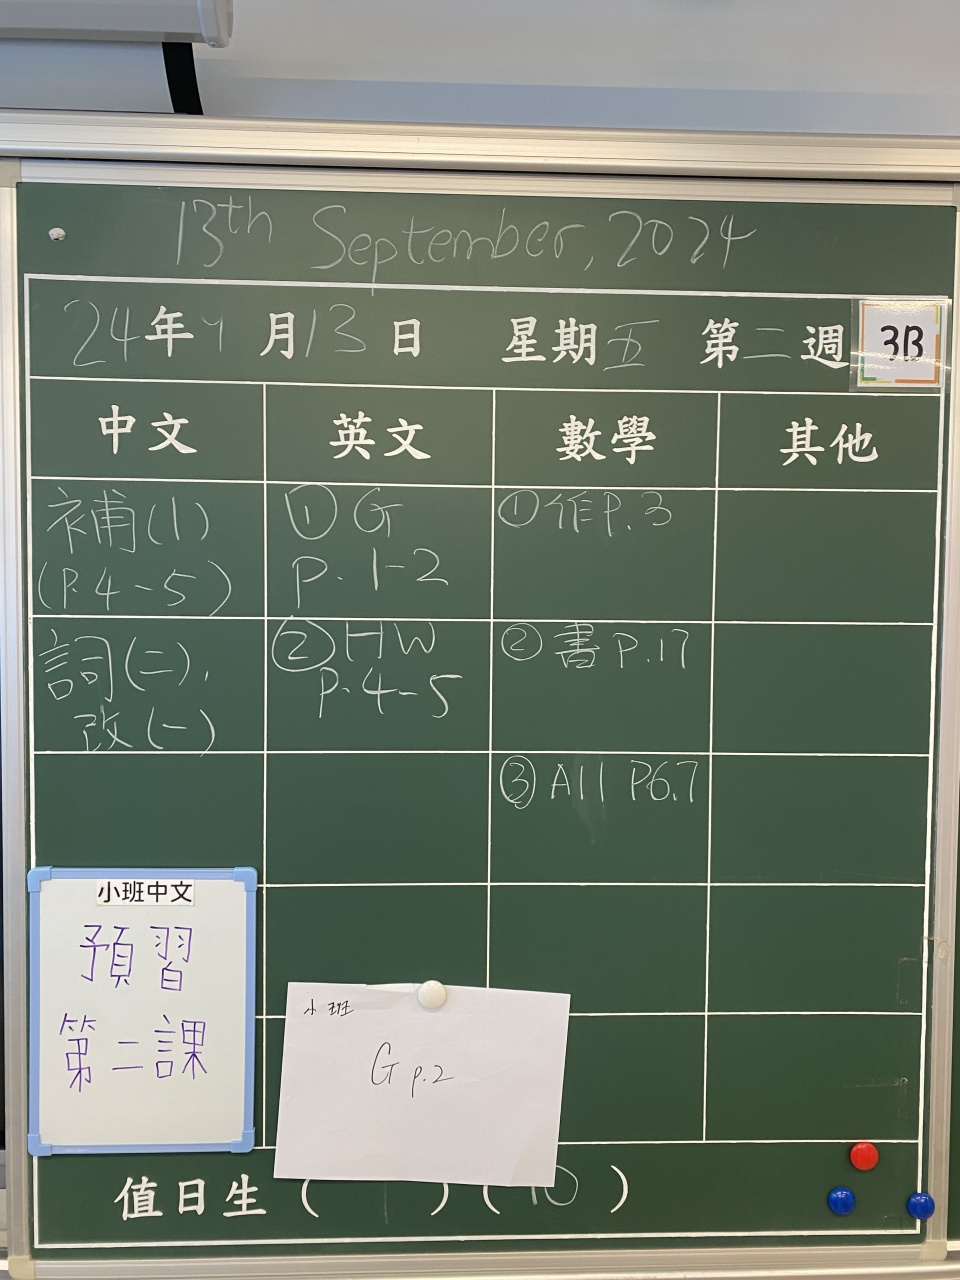 13th September, 2024
24年9月13日 星期五 第二週 3B
中文 英文 數學 其他
補(1)
(P.4-5)
① G
P. 1-2
① 作P.3
詞(二),
改(一)
② HW
P.4-5
② 書 P.17
③ A11 P6.7
小班中文
預習
第二課
小班
G p.2
值日生 ( 1 ) ( 10 )